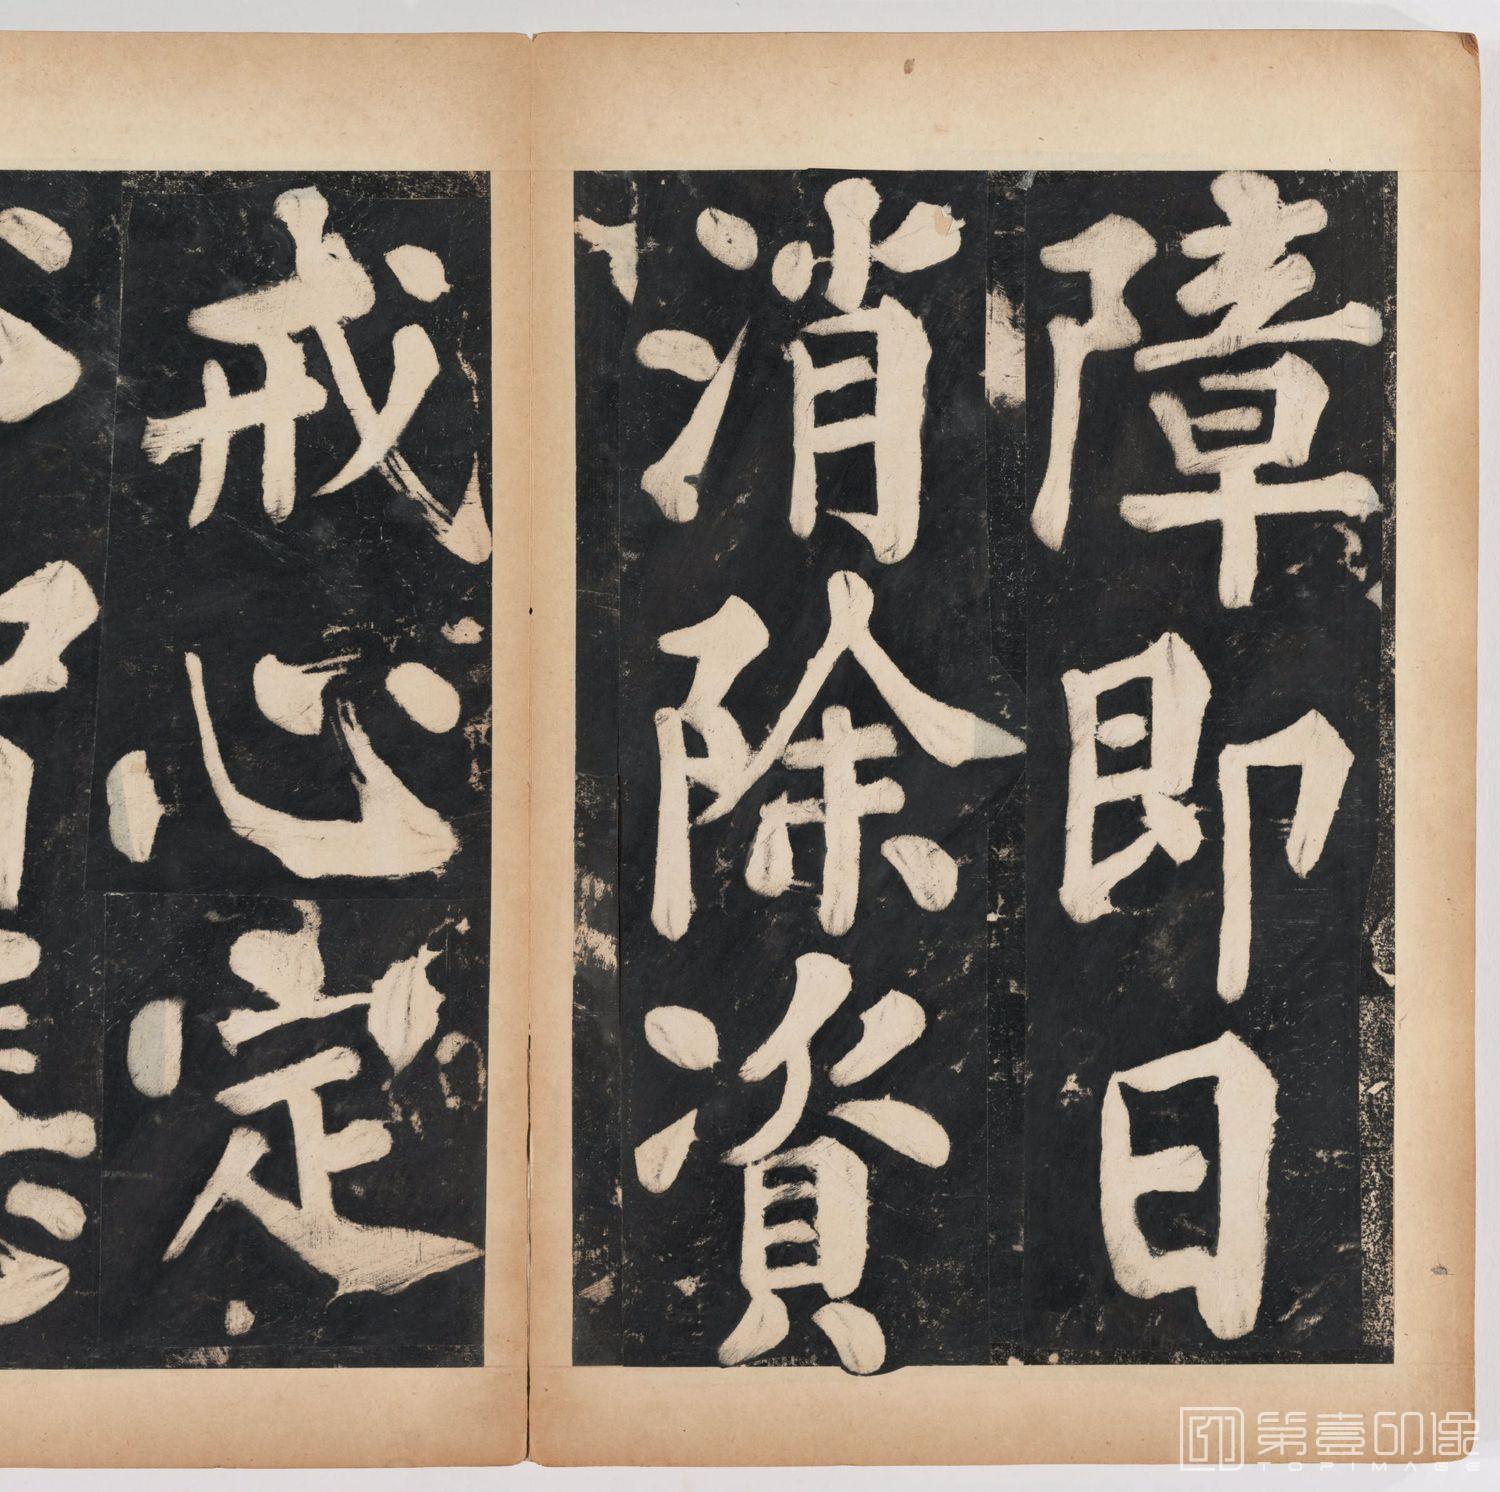 障即日
消除資
戒心定
第壹印像
TOPIMAGE